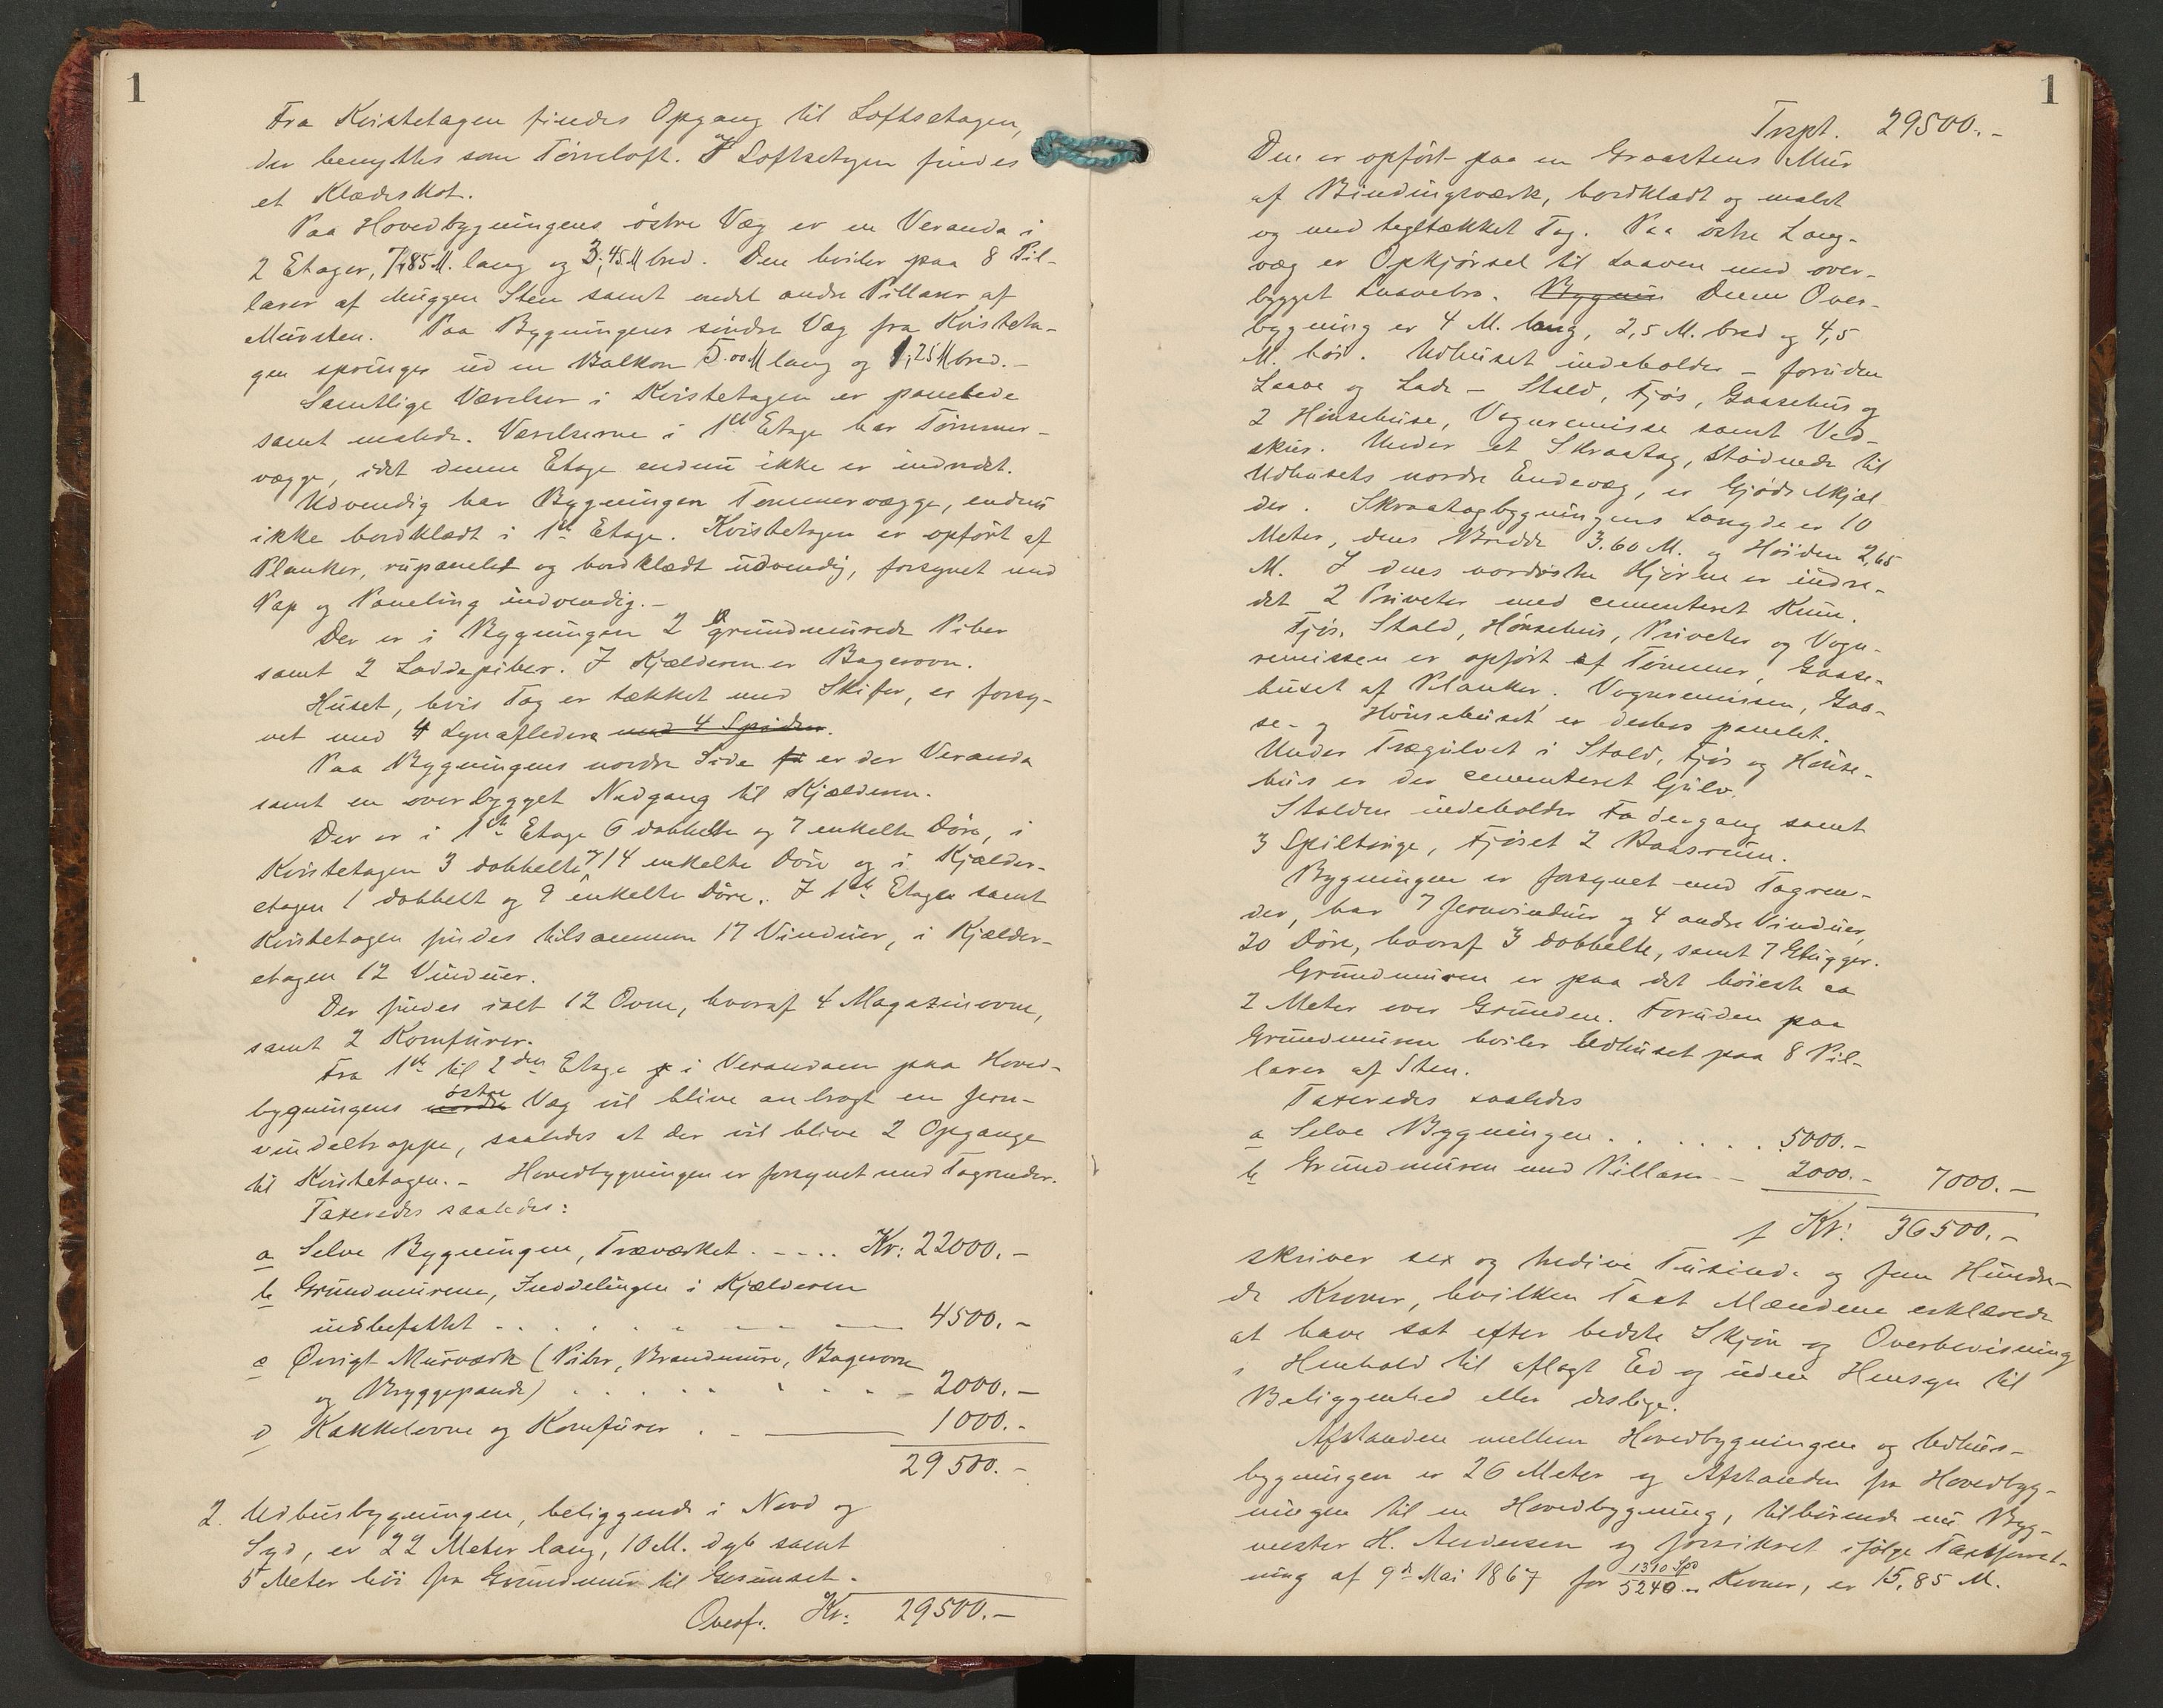 1
Fra Kvistetagen findes Opgang til Loftsetagen,
der benyttes som Tørreloft. I Loftsetagen findes
et Klædeskot.
Paa Hovedbygningens østre Væg er en Veranda i
2 Etager, 7,85 M. lang og 3,45 M bred. Den hviler paa 8 Pil-
larer af Muggen Sten samt endel andre Pillarer af
Mursten. Paa Bygningens søndre Væg fra Kvisteta-
gen springer ud en Balkon 5.00 M lang og 1,25 M bred. -
Samtlige Værelser i Kvistetagen er panelede
samt malede. Værelserne i 1ste Etage har Tømmer-
vægge, idet denne Etage endnu ikke er indredet.
Udvendig har Bygningen Tømmervægge, endnu
ikke bordklædt i 1ste Etage. Kvistetagen er opført af
Planker, rupanelet og bordklædt udvendig, forsynet med
Pap og Paneling indvendig. -
Der er i Bygningen 2 grundmurede Piber
samt 2 Laddepiber. I Kjælderen er Bagerovn.
Huset, hvis Tag er tækket med Skifer, er forsy-
net med 4 Lynafledere med 4 Spidser.
Paa Bygningens nordre Side fi er der Veranda
samt en overbygget Nedgang til Kjælderen.
Der er i 1ste Etage 6 dobbelte og 7 enkelte Døre, i
Kvistetagen 3 dobbelte og 14 enkelte Døre og i Kjælder-
etagen 1 dobbelt og 9 enkelte Døre. I 1ste Etage samt
Kvistetagen findes tilsammen 17 Vinduer, i Kjælder-
etagen 12 Vinduer.
Der findes ialt 12 Ovne, hvoraf 4 Magazinovne,
samt 2 Komfurer.
Fra 1ste til 2den Etage i Verandaen paa Hoved-
bygningens nordre østre Væg vil blive anbragt en Jern-
vindeltrappe, saaledes at der vil blive 2 Opgange
til Kvistetagen. - Hovedbygningen er forsynet med Tagrender.
Taxeredes saaledes:
a Selve Bygningen, Træværket . - . . . Kr: 22000. -
b Grundmurene, Inddelingen i Kjælderen
indbefattet - . . . - - - 4500. -
c Øvrigt Murværk (Piber, Brandmure, Bagerovn
og Bryggepande) . . . . . . . - 2000. -
d Kakkelovne og Komfurer . - 1000. -
29500. -
2. Udhusbygningen, beliggende i Nord og
Syd, er 22 Meter lang, 10 M. dyb samt
5 Meter høi fra Grundmur til Gesimset. -
Overf. Kr: 29500. -
1
Trspt. 29500. -
Den er opført paa en Graastens Mur
af Bindingsværk, bordklædt og malet
og med tegltækket Tag. Paa østre Lang-
væg er Opkjørsel til Laaven med over-
bygget Laavebro. Bygnin Denne Over-
bygning er 4 M. lang, 2,5 M. bred og 4,5
M. høi. Udhuset indeholder - foruden
Laave og Lade - Stald, Fjøs, Gaasehus og
2 Hønsehuse, Vognremisse samt Ved-
skur. Under et Skraatag, stødende til
Udhusets nordre Endevæg, er Gjødselkjæl
der. Skraatagbygningens Længde er 10
Meter, dens Bredde 3.60 M. og Høiden 2,65
M. I dens nordøstre Hjørne er indre-
det 2 Priveter med cementeret Kum.
Fjøs, Stald, Hønsehus, Priveter og Vogn-
remissen er opført af Tømmer, Gaase-
huset af Planker. Vognremissen, Gaa-
se- og Hønsehuset er desbos panelet.
Under Trægulvet i Stald, Fjøs og Hønse-
hus er der cementeret Gulv.
Stalden indeholder Fodergang samt
3 Spiltauge, Fjøset 2 Baasrum.
Bygningen er forsynet med Tagren-
der, har 7 Jernvinduer og 4 andre Vinduer,
20 Døre, hvoraf 3 dobbelte, samt 7 Glugger.
Grundmuren er paa det høieste ca
2 Meter over Grunden. Foruden paa
Grundmuren hviler Udhuset paa 8 Pil-
larer af Sten.
Taxeredes saaledes
a Selve Bygningen . . . . . . 5000. -
b Grundmuren med Pillarer - - 2000. - 7000. -
Kr: 36500. -
skriver sex og tredive Tusinde og fem Hundre-
de Kroner, hvilken Taxt Mændene erklærede
at have sat efter bedste Skjøn og Overbevisning
i Henhold til aflagt Ed og uden Hensyn til
Beliggenhed eller deslige.
Afstanden mellem Hovedbygningen og Udhus-
bygningen er 26 Meter og Afstanden fra Hovedbyg-
ningen til en Hovedbygning, tilhørende nu Byg-
mester H. Andersen og forsikret ifølge Taxtforret-
ning af 9de Mai 1867 for 1310 Spd 5240 .- Kroner, er 15,85 M.